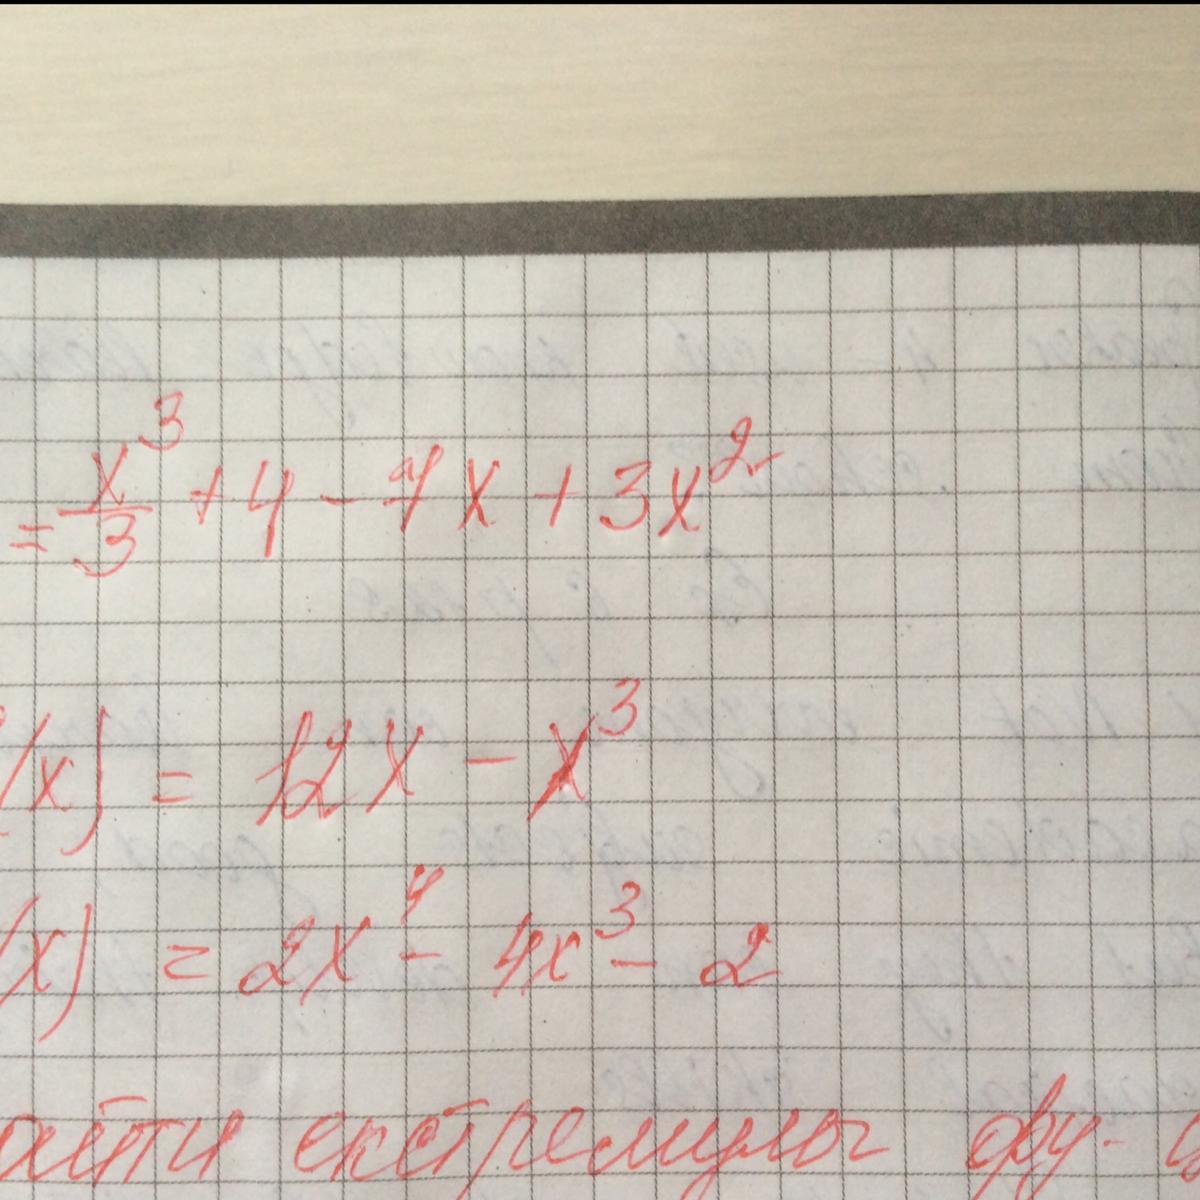 = x³/3 + 4 - 7x + 3x²
(x) = 12x - x³
(x) = 2x⁴ - 4x³ - 2
айти екстремулы фу-